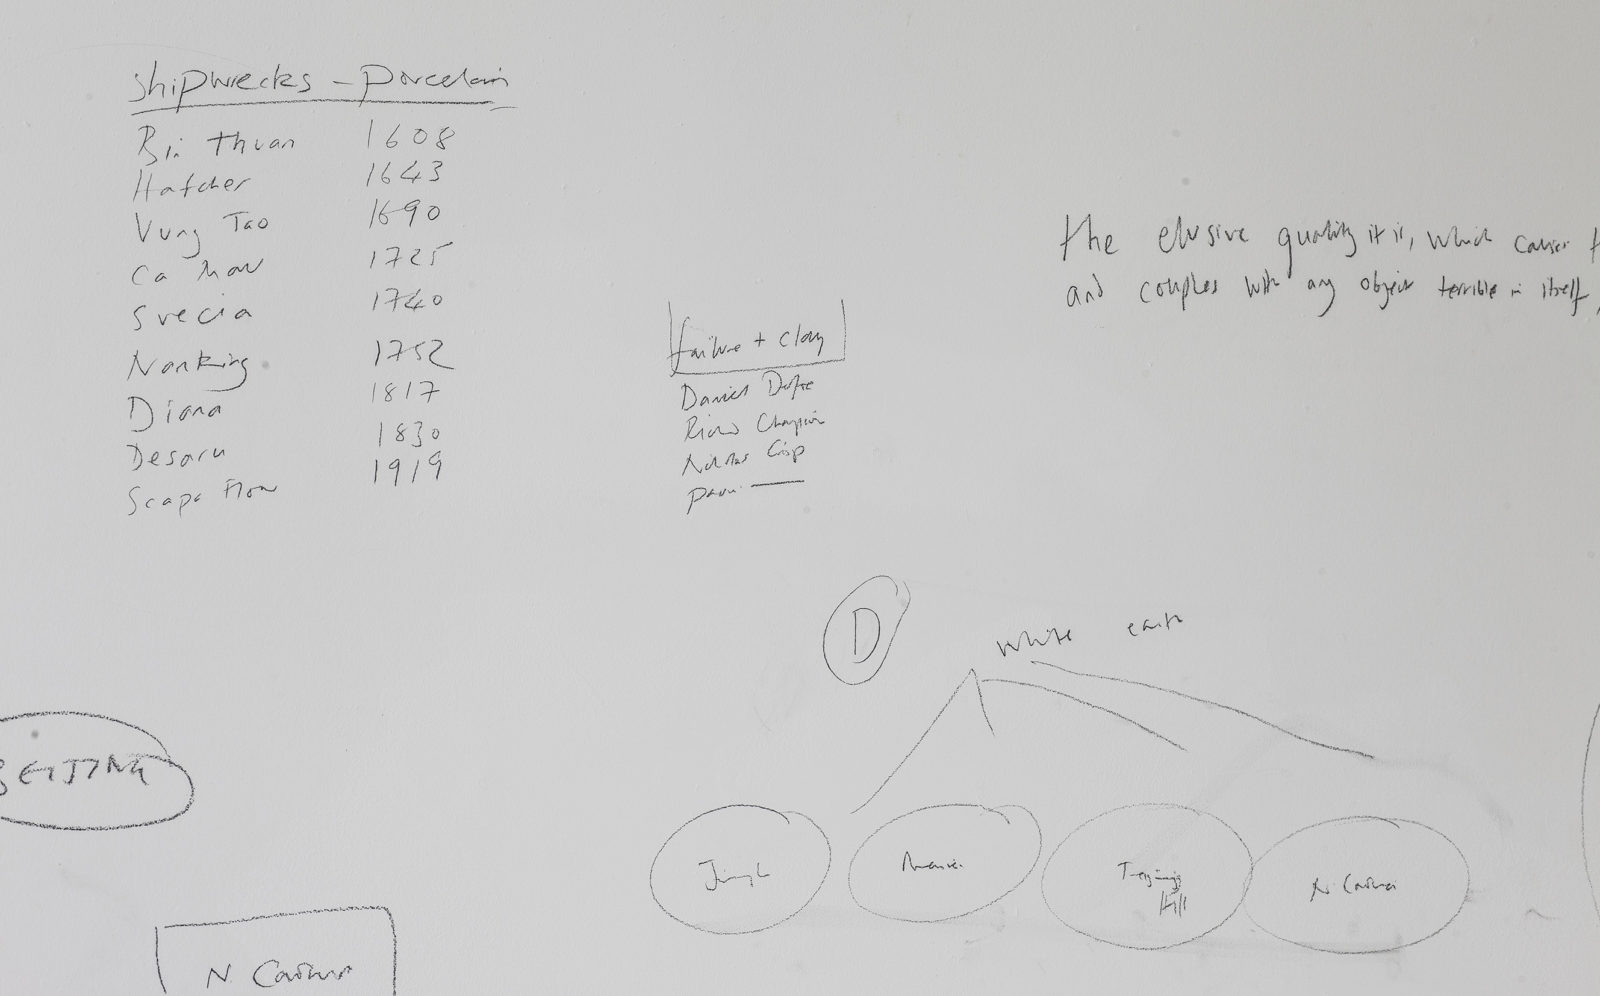 Shipwrecks - porcelain
Bin Thuan 1608
Hatcher 1643
Vung Tao 1690
Ca Mau 1725
Svecia 1740
Nanking 1752
Diana 1817
Desaru 1830
Scapa Flow 1919
the elusive quality it is, which causes
and couples with any object terrible in itself,
failure + clay
Daniel Defoe
Richard Champion
Nicholas Crisp
D
white earth
Tregonning
Hill
N. Carolina
N Carolina